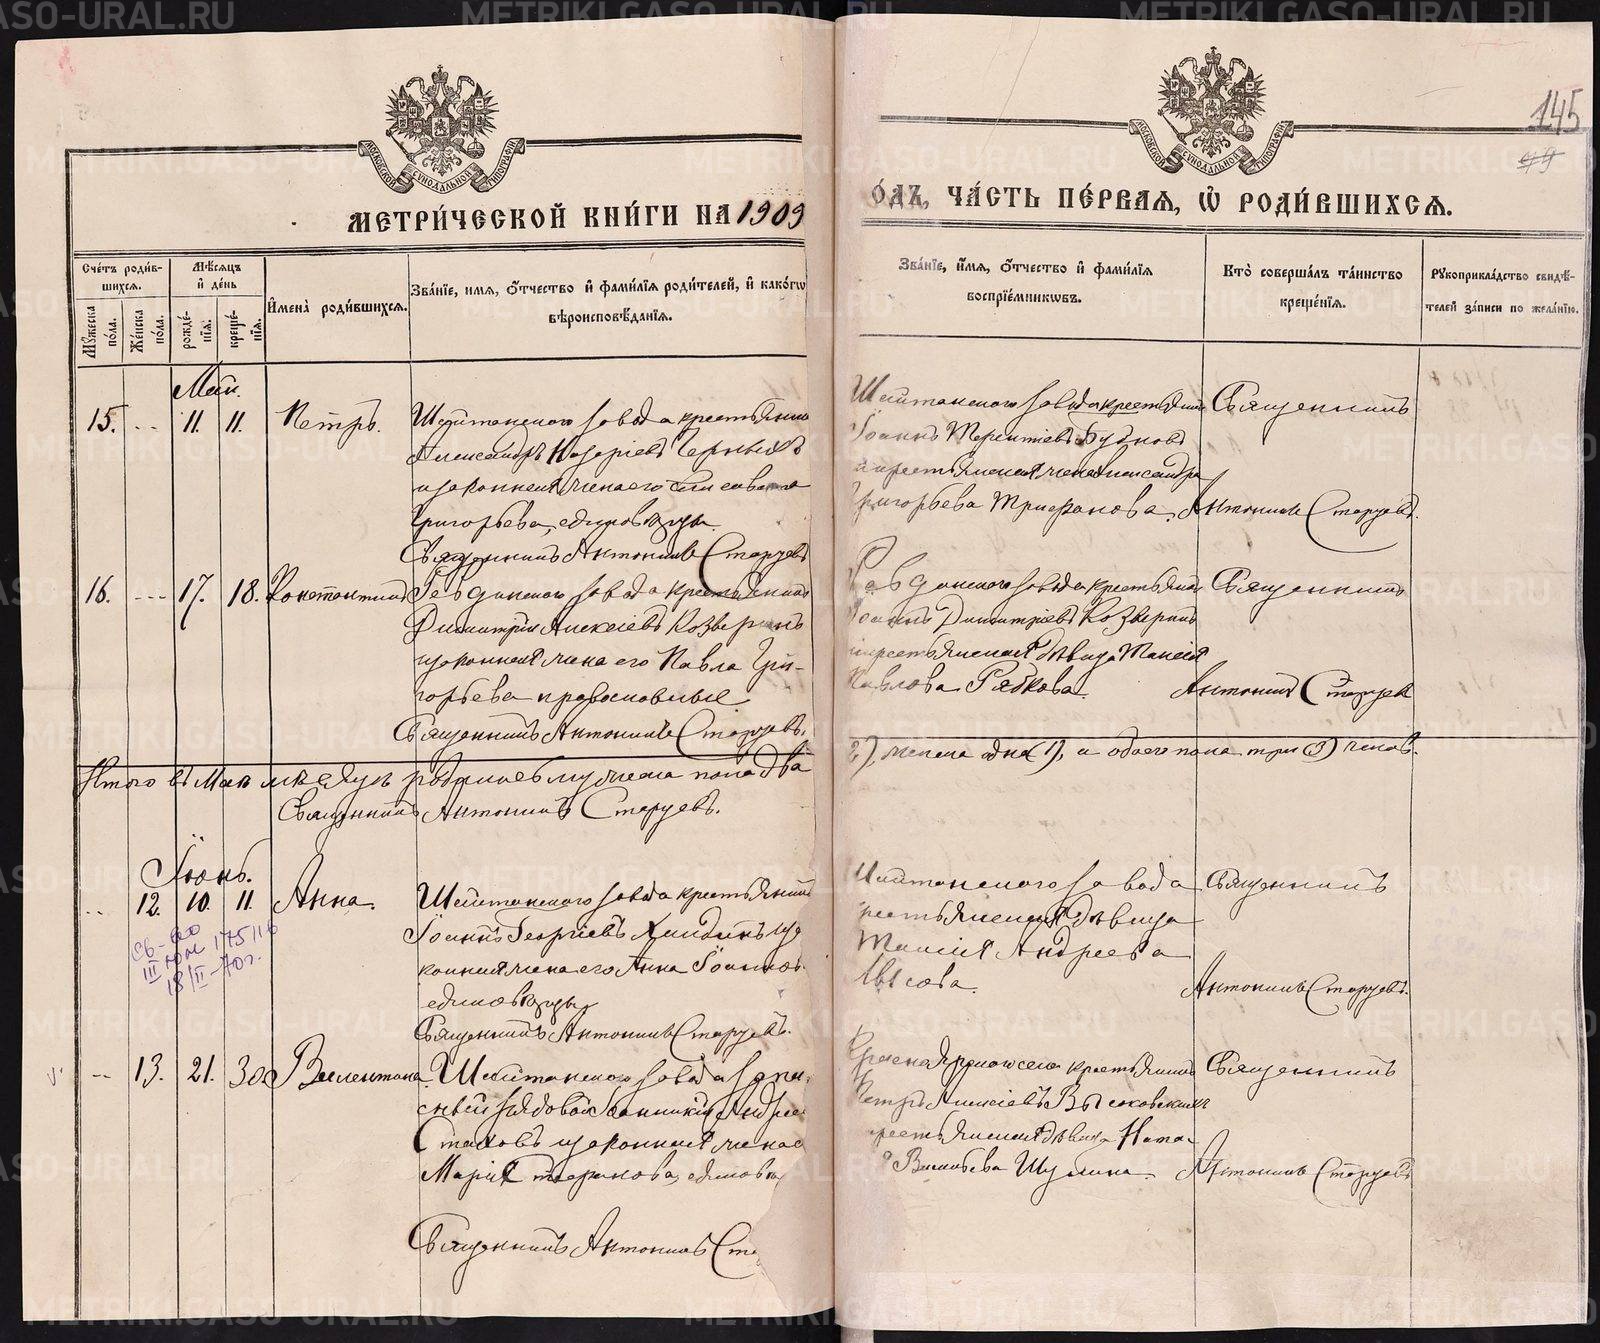 145
49
МОСКОВСКОЙ СѴНОДАЛЬНОЙ ТИПОГРАФІИ
МОСКОВСКОЙ СѴНОДАЛЬНОЙ ТИПОГРАФІИ
МЕТРИ́ЧЕСКОЙ КНИ́ГИ НА 1909
О́ДЪ, ЧА́СТЬ ПЕ́РВАЯ, Ѡ РОДИ́ВШИХСЯ.
Сче́тъ роди́в-
шихся.
Му́жеска по́ла.
Же́нска по́ла.
Мѣ́сяцъ
и де́нь
рожде́-
нія.
креще́-
нія.
Имена̀ роди́вшихся.
Зва́ніе, имя, о́тчество и фами́лія роди́телей, и како́гѡ
вѣроисповѣ́данія.
Зва́ніе, и́мя, о́тчество и фами́лія
воспріе́мниковъ.
Кто̀ соверша́лъ та́инство
креще́нія.
Рукоприкла́дство свидѣ́-
телей за́писи по жела́нію.
Май.
15. -- 11. 11. Петръ.
Шайтанскаго завода крестьянинъ
Александръ Назаріевъ Черныхъ
и законная жена его Елисавета
Григорьева, единовѣрцы
Священникъ Антонинъ Старцевъ
Шайтанскаго завода крестьянинъ
Іоаннъ Терентіевъ
и крестьянская жена Александра
Григорьева Трифанова.
Священникъ
Антонинъ Старцевъ.
16. --- 17. 18. Константинъ
Ревдинскаго завода крестьянинъ
Димитрій Алексіевъ Козверинъ
и законная жена его Павла Гри-
горьева православные
Священникъ Антонинъ Старцевъ.
Ревдинскаго завода крестьянинъ
Іоаннъ Димитріевъ Козверинъ
и крестьянская дѣвица Таисія
Павлова Рябкова.
Священникъ
Антонинъ Старцевъ
Итого въ Маѣ мѣсяцѣ родилось мужеска пола два
2), женска одна (1), а обоего пола три (3) челов.
Священникъ Антонинъ Старцевъ.
Іюнь.
-- 12. 10. 11. Анна.
св-во
III юл 175116
18/II-70г.
Шайтанскаго завода крестьянинъ
Іоаннъ Георгіевъ и за
конная жена его Анна Іоаннов.
единовѣрцы
Священникъ Антонинъ Старцевъ.
Шайтанскаго завода
крестьянская дѣвица
Таисія Андреева
Священникъ
Антонинъ Старцевъ.
-- 13. 21. 30. Валентина.
Шайтанскаго завода запа-
сный рядовой Іоанникій Андрее
Стаховъ и законная жена е
Марія единовѣ
Священникъ Антонинъ Ста
Красноярскаго села крестьянинъ
Петръ Алексіевъ Высоковскихъ
крестьянская дѣвица Ната-
Васильева Шулина.
Священникъ
Антонинъ Старцевъ
METRIKI.GASO-URAL.RU